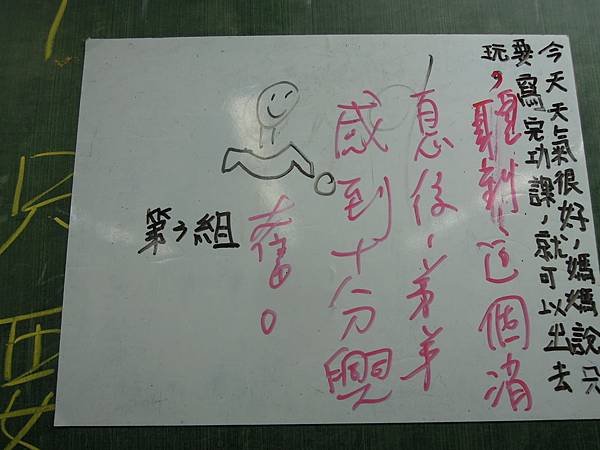 今天天氣很好，媽媽說只
要寫完功課，就可以出去
玩，聽到這個消
息後，弟弟
感到十分興
奮。
第3組
只要